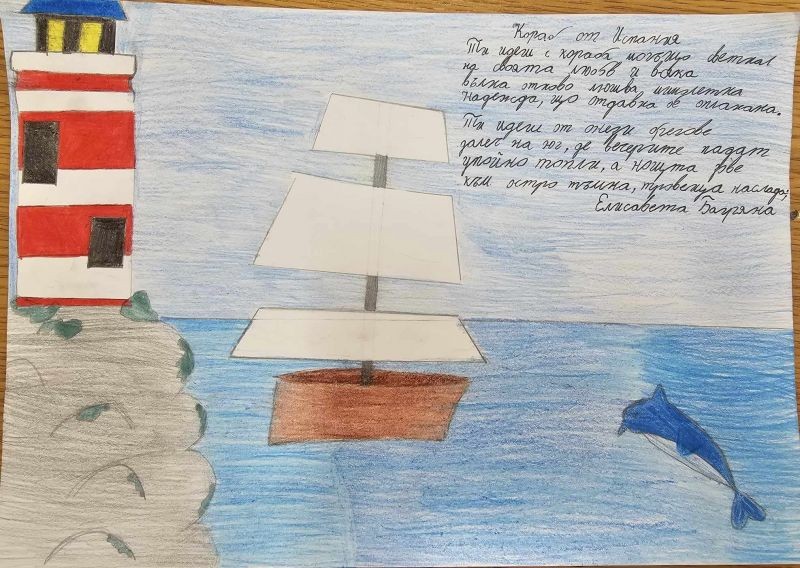 Кораб от Испания
Ти идеш с кораба могъщо светнал
на своята любов и всяка
вълка отново люшва,
надежда, що отдавна е оплакана.
Ти идеш от онези брегове
далеч на юг, де вечерите падат
упойно топли, а нощта рве
към остро тъмна, наслада;
Елисавета Багряна